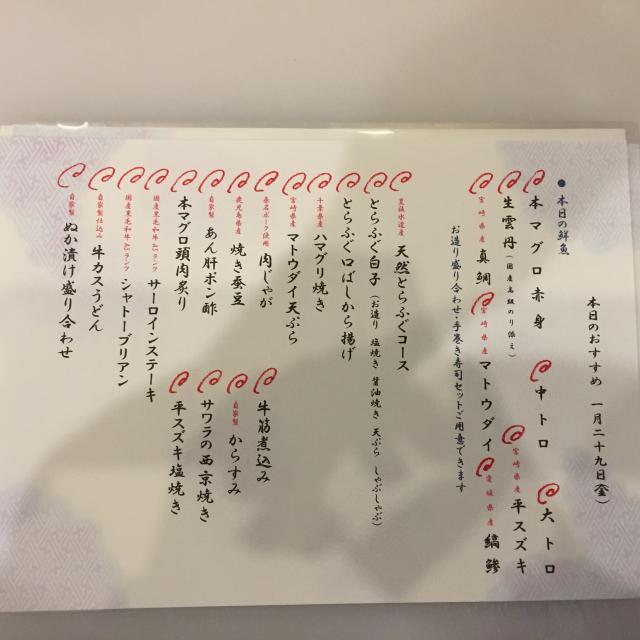 本日のおすすめ 一月二十九日(金)
●本日の鮮魚
本マグロ赤身 中トロ 大トロ
生雲丹(国産高級のり添え) 宮崎県産 平スズキ
宮崎県産 真鯛 宮崎県産 マトウダイ 愛媛県産 縞鯵
お造り盛り合わせ・手巻き寿司セットご用意できます
豊後水道産 天然とらふぐコース
とらふぐ白子(お造り 塩焼き 醤油焼き 天ぷら しゃぶしゃぶ)
とらふぐ口ばしから揚げ
千葉県産 ハマグリ焼き
宮崎県産 マトウダイ天ぷら
桑名ポーク使用 肉じゃが
鹿児島県産 焼き蚕豆
自家製 あん肝ポン酢
本マグロ頭肉炙り
国産黒毛和牛A5ランク サーロインステーキ
国産黒毛和牛A5ランク シャトーブリアン
自家製仕込み 牛カスうどん
自家製 ぬか漬け盛り合わせ
牛筋煮込み
自家製 からすみ
サワラの西京焼き
平スズキ塩焼き